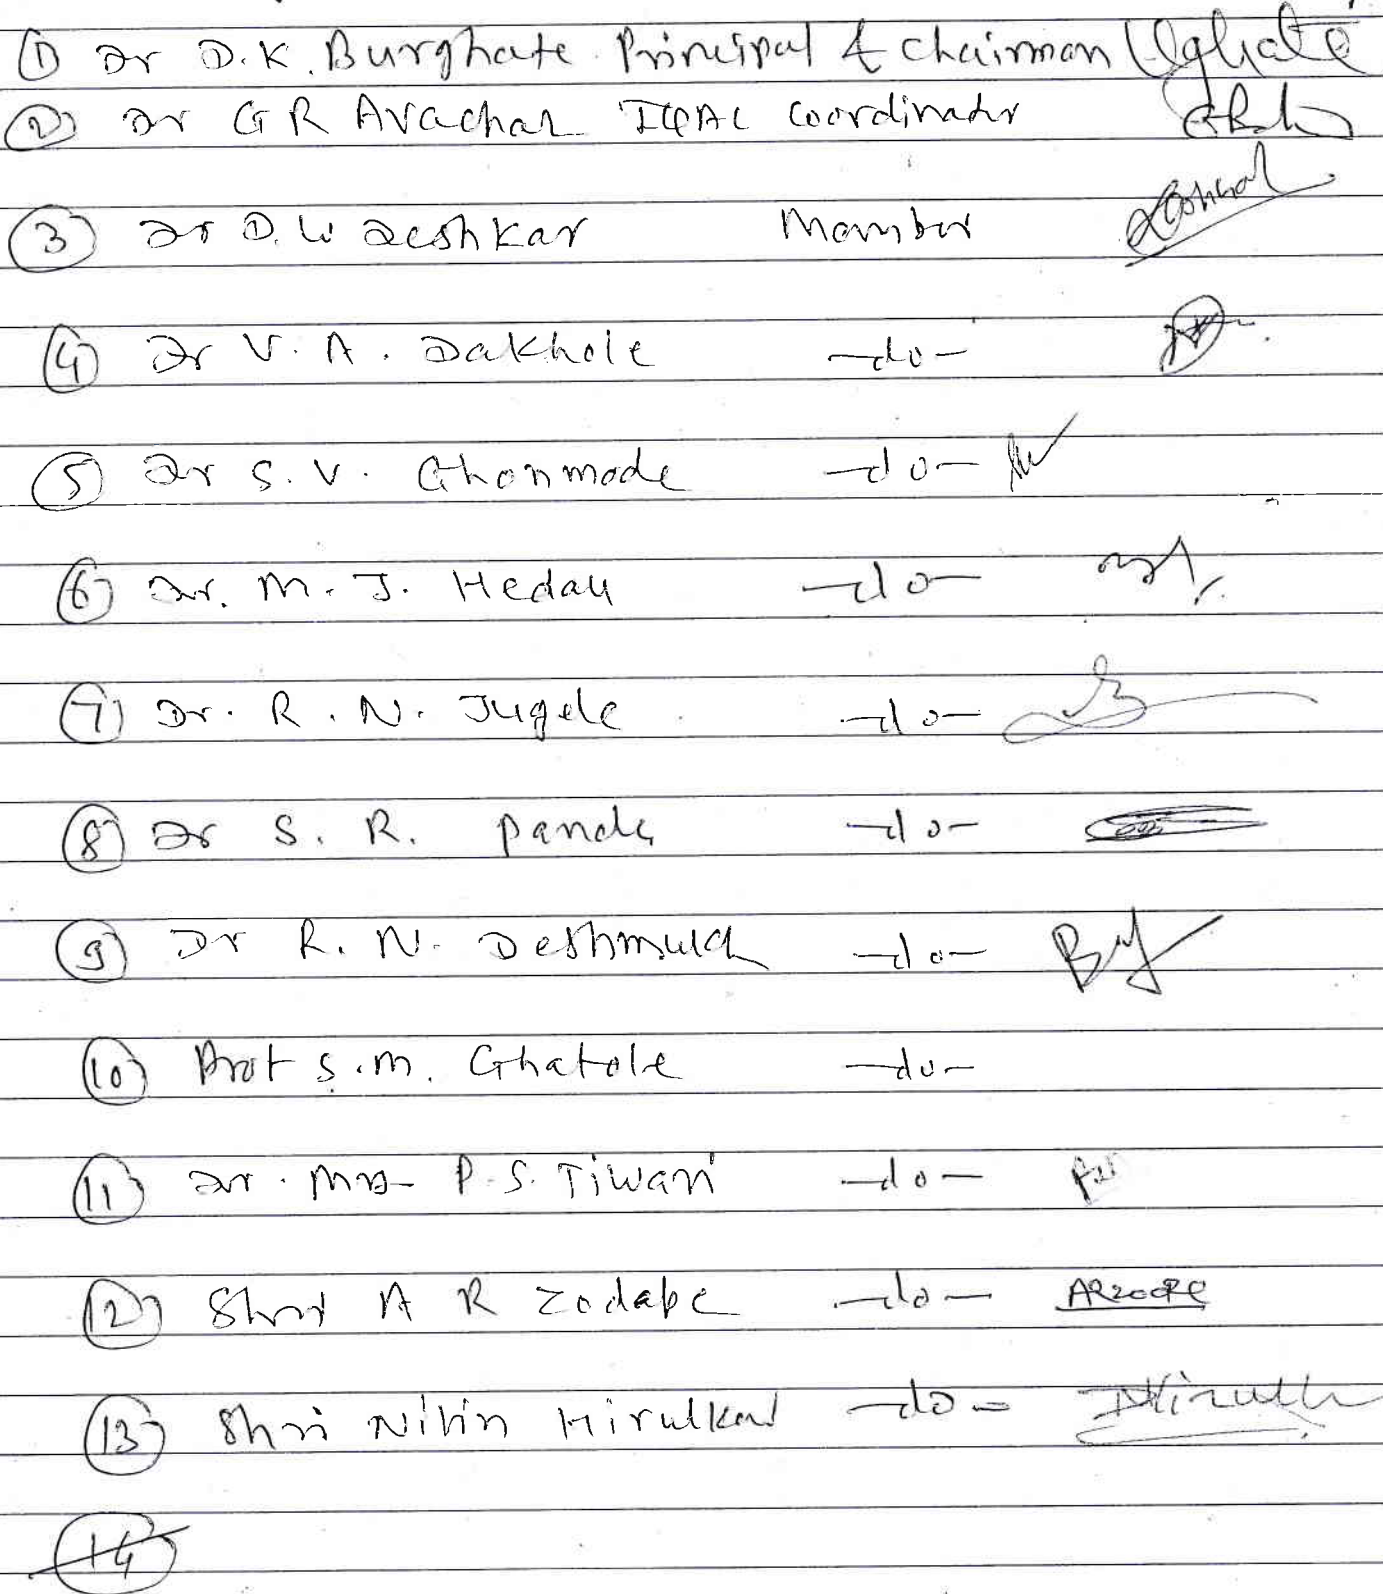 ① Dr D.K. Burghate Principal & Chairman
② Dr G R Avachar IQAC Coordinator
③ Dr D. W Deshkar Member
④ Dr V. A. Dakhole -do-
⑤ Dr S. V. Ghonmode -do-
⑥ Dr. M. J. Hedau -do-
⑦ Dr. R. N. Jugele -do-
⑧ Dr S. R. Pande -do-
⑨ Dr R. N. Deshmukh -do-
⑩ Prof S.M. Ghatole -do-
⑪ Dr. Mrs P.S. Tiwari -do-
⑫ Shri A R Zodape -do- ARZODPE
⑬ Shri Nitin Hirulkar -do-
⑭